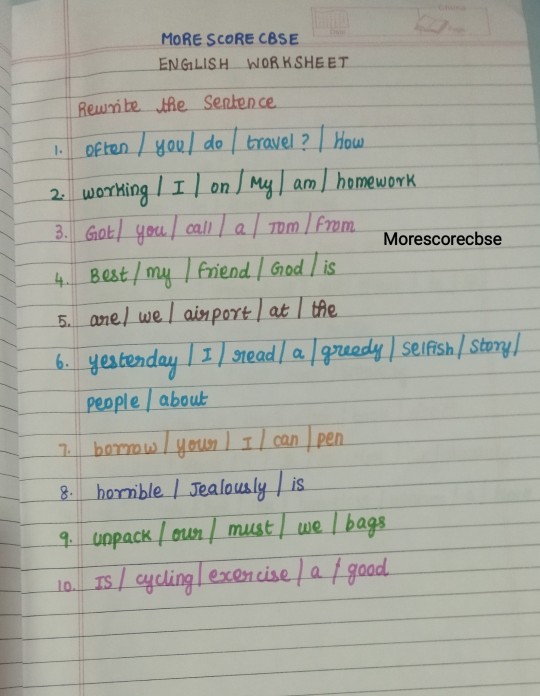 MORE SCORE CBSE
ENGLISH WORKSHEET
Rewrite the Sentence
1. often / you / do / travel? / How
2. working / I / on / My / am / homework
3. Got / you / call / a / Tom / from
Morescorecbse
4. Best / my / friend / God / is
5. are / we / airport / at / the
6. yesterday / I / read / a / greedy / selfish / story /
people / about
7. borrow / your / I / can / pen
8. horrible / Jealously / is
9. unpack / our / must / we / bags
10. IS / cycling / exercise / a / good